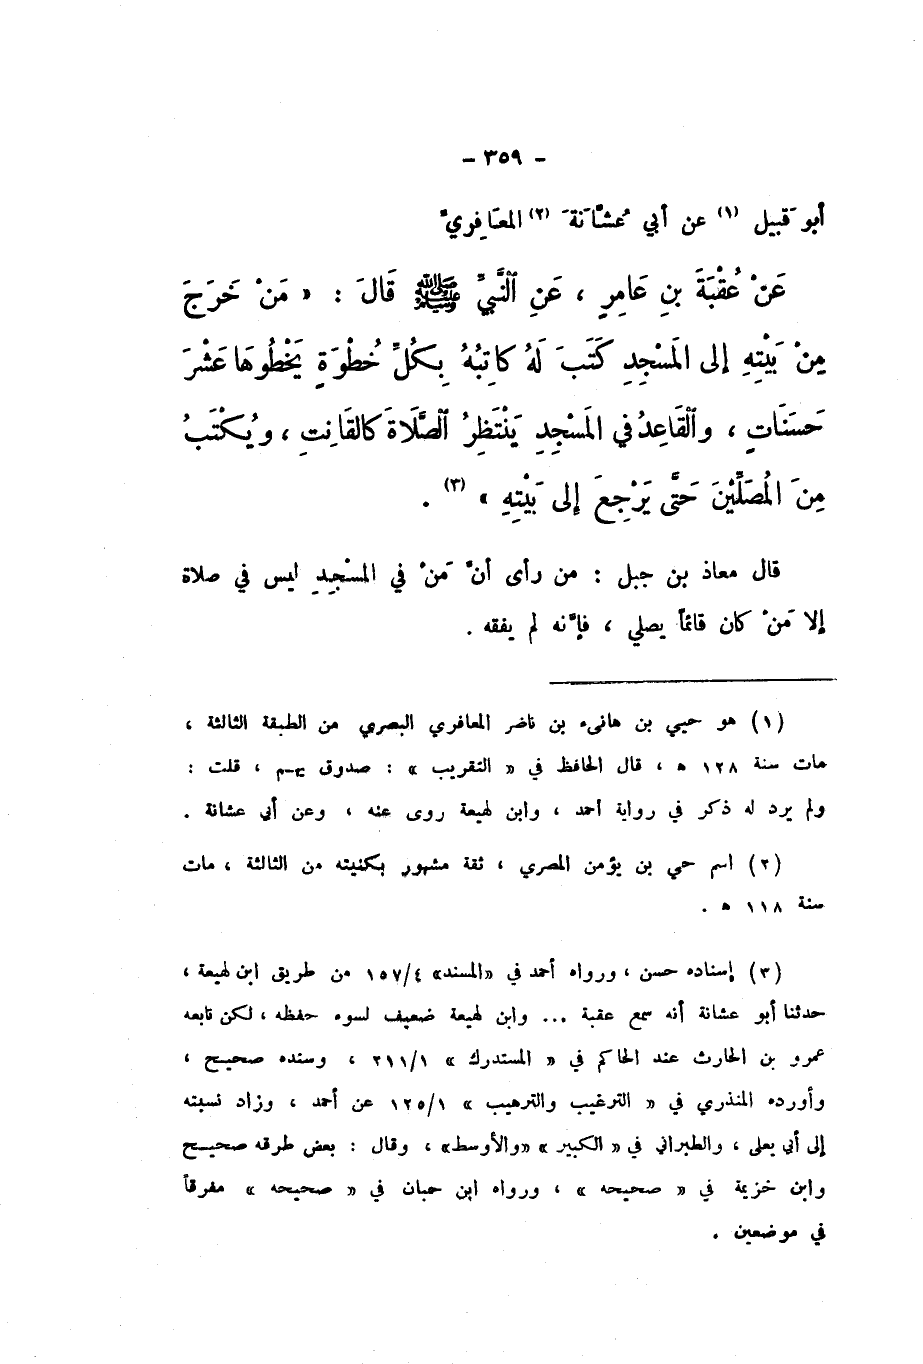 - ٣٥٩ -
أبو قَبيل (١) عن أبي عُشّانَةَ (٢) المعَافِريّ
عَنْ عُقْبَةَ بنِ عَامِرٍ ، عَنِ ٱلنَّبِيِّ ﷺ قَالَ : « مَنْ خَرَجَ
مِنْ بَيْتِهِ إلى المَسْجِدِ كَتَبَ لَهُ كاتِبُهُ بِكُلِّ خُطْوَةٍ يَخْطُوهَا عَشْرَ
حَسَنَاتٍ ، وٱلْقَاعِدُ في المَسْجِدِ يَنْتَظِرُ ٱلصَّلَاةَ كالقَانِتِ ، ويُكْتَبُ
مِنَ المُصَلِّيْنَ حَتَّى يَرْجِعَ إلى بَيْتِهِ » (٣) .
قال معاذ بن جبل : من رأى أنّ مَنْ في المسْجِدِ ليس في صلاة
إلا مَنْ كان قائماً يصلي ، فإنّه لم يفقه .
(١) هو حيي بن هانىء بن ناضر المعافري البصري من الطبقة الثالثة ،
مات سنة ١٢٨ ه ، قال الحافظ في « التقريب » : صدوق يهم ، قلت :
ولم يرد له ذكر في رواية أحمد ، وابن لهيعة روى عنه ، وعن أبي عشانة .
(٢) اسم حي بن يؤمن المصري ، ثقة مشهور بكنيته من الثالثة ، مات
سنة ١١٨ ه .
(٣) إسناده حسن ، ورواه أحمد في «المسند» ١٥٧/٤ من طريق ابن لهيعة ،
حدثنا أبو عشانة أنه سمع عقبة ... وابن لهيعة ضعيف لسوء حفظه ، لكن تابعه
عمرو بن الحارث عند الحاكم في « المستدرك » ٢١١/١ ، وسنده صحيح ،
وأورده المنذري في « الترغيب والترهيب » ١٢٥/١ عن أحمد ، وزاد نسبته
إلى أبي يعلى ، والطبراني في « الكبير » «والأوسط» ، وقال : بعض طرقه صحيح
وابن خزيمة في « صحيحه » ، ورواه ابن حبان في « صحيحه » مفرقاً
في موضعين .